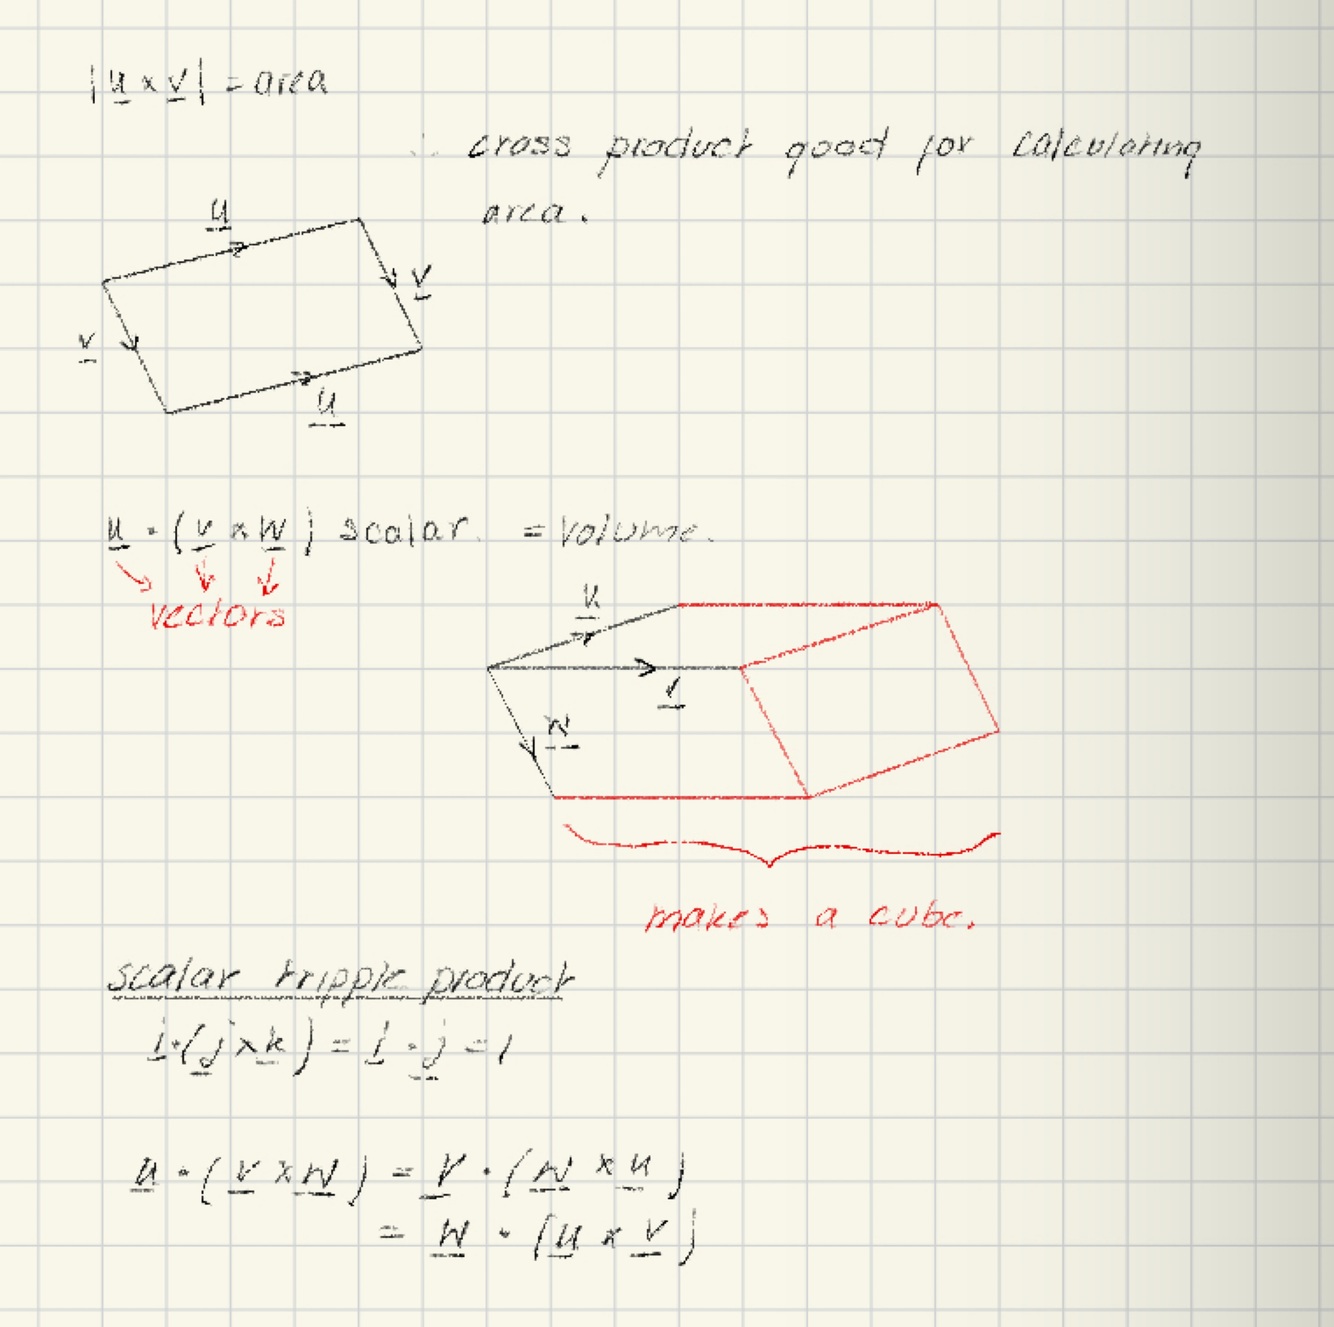 |u × v| = area
∴ cross product good for calculating
area.
u
v
v
u
u · (v × w) scalar. = volume.
vectors
u
v
w
makes a cube.
scalar tripple product
i·(j×k) = i · j = 1
u · (v × w) = v · (w × u)
= w · (u × v)